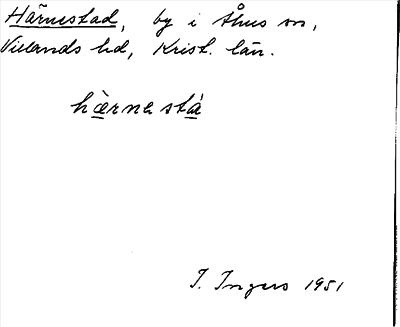 Härnestad, by i Åhus sn,
Villands hd, Krist. län.
hærnestá
I. Ingers 1951